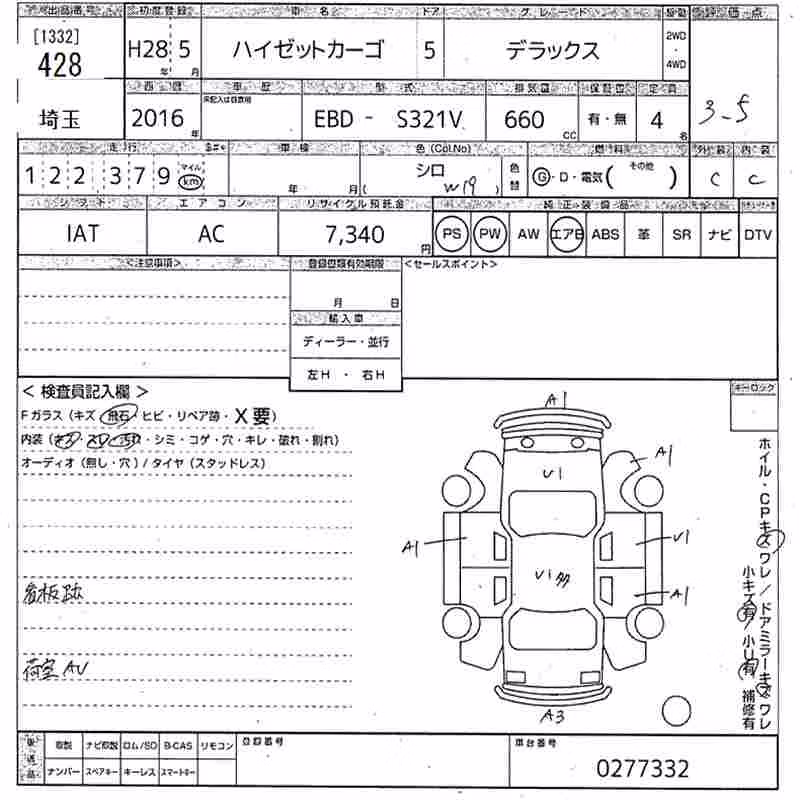 出品番号 初度登録 車名 ドア グレード 駆動 評価点
[1332]
428
H28 年 5 月 ハイゼットカーゴ 5 デラックス 2WD・4WD
西暦 車歴 型式 排気量 保証書 定員
未記入は自家用
埼玉 2016年 EBD - S321V 660 CC 有・無 4名 3.5
走行 車検 色(Col.No) 燃料 外装 内装
122,379 マイル km 年 月 シロ ( W19 ) 色替 G・D・電気( その他 ) C C
シフト エアコン リサイクル預託金 純正装備品
IAT AC 7,340円 PS PW AW エアB ABS 革 SR ナビ DTV
<注意事項> 登録書類有効期限 <セールスポイント>
月 日
輸入車
ディーラー・並行
左H ・ 右H
<検査員記入欄> キーロック
Fガラス(キズ・飛石・ヒビ・リペア跡・X要)
内装(キズ・スレ・汚れ・シミ・コゲ・穴・キレ・破れ・割れ)
オーディオ(無し・穴)/タイヤ(スタッドレス)
A1
U1
A1
A1
U1
U1多
A1
A3
看板跡
荷室AU
ホイル・CPキズワレ/ドアミラーキズワレ
小キズ有/小U有 補修有
後送品 取説 ナビ取説 ロム/SD B-CAS リモコン 登録番号 車台番号
ナンバー スペアキー キーレス スマートキー
0277332